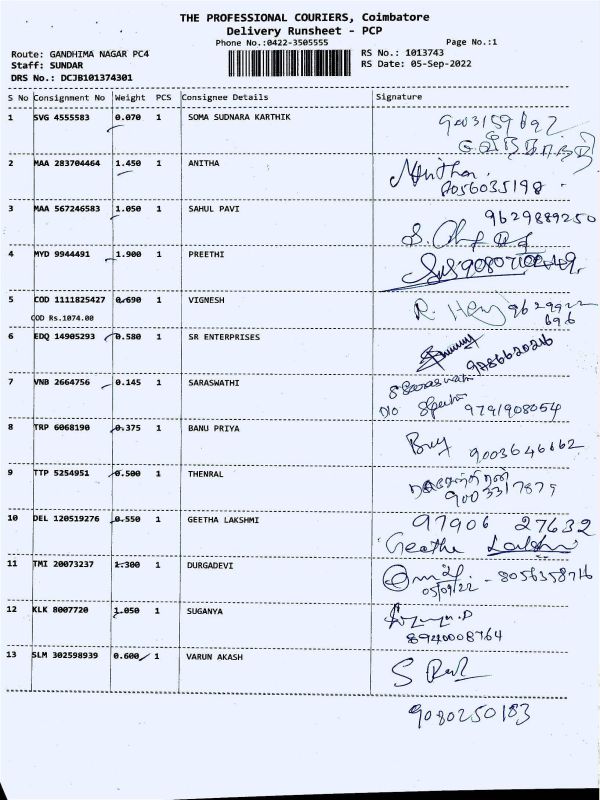 THE PROFESSIONAL COURIERS, Coimbatore
Delivery Runsheet - PCP
Phone No.:0422-3505555
Page No.:1
Route: GANDHIMA NAGAR PC4
RS No.: 1013743
Staff: SUNDAR
RS Date: 05-Sep-2022
DRS No.: DCJB101374301
S No Consignment No Weight PCS Consignee Details Signature
1 SVG 4555583 0.070 1 SOMA SUDNARA KARTHIK
9003159692
2 MAA 283704464 1.450 1 ANITHA
Anitha
8056035198
3 MAA 567246583 1.050 1 SAHUL PAVI
9629889250
4 MYD 9944491 1.900 1 PREETHI
5 COD 1111825427 0.690 1 VIGNESH
COD Rs.1074.00
6 EDQ 14905293 0.580 1 SR ENTERPRISES
7 VNB 2664756 0.145 1 SARASWATHI
S Saraswathi
D/o
9791908054
8 TRP 6068190 0.375 1 BANU PRIYA
9003646662
9 TTP 5254951 0.500 1 THENRAL
9003317879
10 DEL 120519276 0.550 1 GEETHA LAKSHMI
97906 27632
Geetha Lakshmi
11 TMI 20073237 1.300 1 DURGADEVI
05/09/22 - 8056358716
12 KLK 8007720 1.050 1 SUGANYA
8940008764
13 SLM 302598939 0.600 1 VARUN AKASH
9080250183